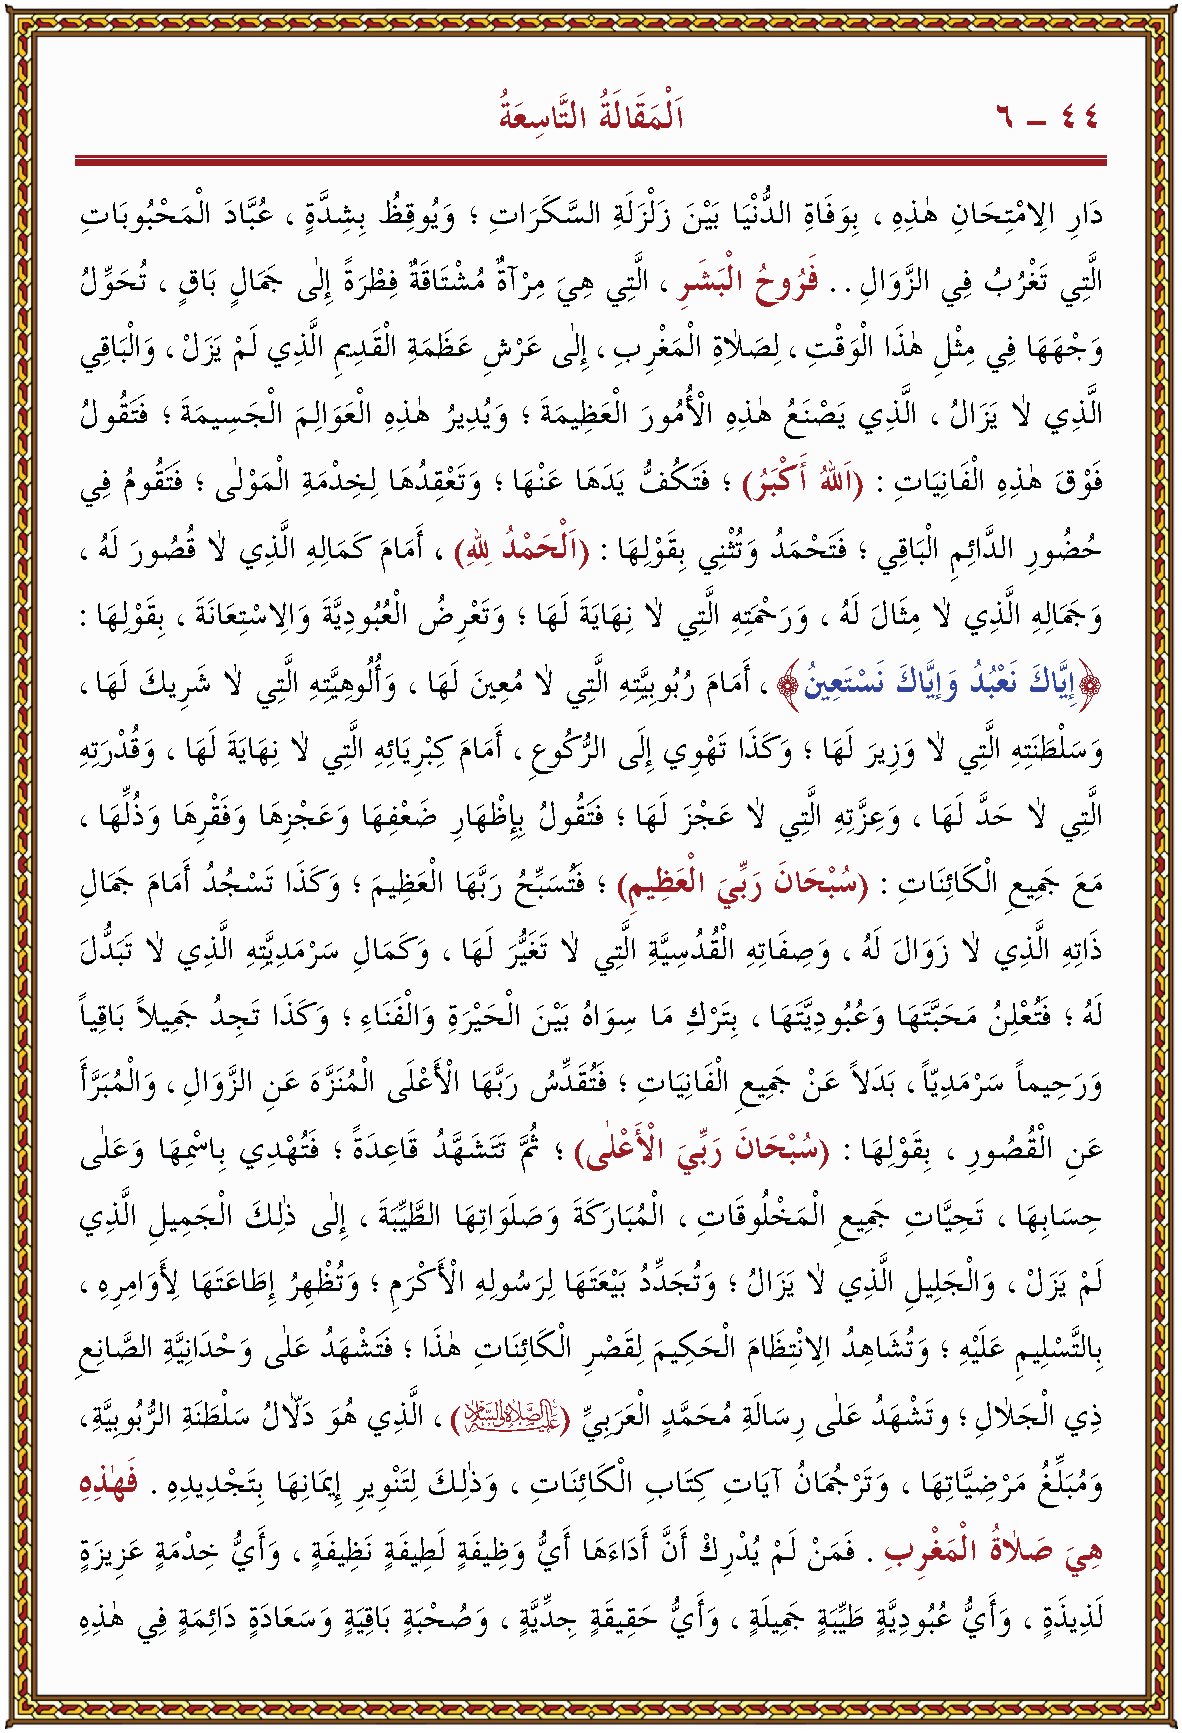 ٤٤ – ٦ اَلْمَقَالَةُ التَّاسِعَةُ
دَارِ الِامْتِحَانِ هٰذِهِ ، بِوَفَاةِ الدُّنْيَا بَيْنَ زَلْزَلَةِ السَّكَرَاتِ ؛ وَيُوقِظُ بِشِدَّةٍ ، عُبَّادَ الْمَحْبُوبَاتِ
الَّتِي تَغْرُبُ فِي الزَّوَالِ . . فَرُوحُ الْبَشَرِ ، الَّتِي هِيَ مِرْآةٌ مُشْتَاقَةٌ فِطْرَةً إِلٰى جَمَالٍ بَاقٍ ، تُحَوِّلُ
وَجْهَهَا فِي مِثْلِ هٰذَا الْوَقْتِ ، لِصَلَاةِ الْمَغْرِبِ ، إِلٰى عَرْشِ عَظَمَةِ الْقَدِيمِ الَّذِي لَمْ يَزَلْ ، وَالْبَاقِي
الَّذِي لَا يَزَالُ ، الَّذِي يَصْنَعُ هٰذِهِ الْأُمُورَ الْعَظِيمَةَ ؛ وَيُدِيرُ هٰذِهِ الْعَوَالِمَ الْجَسِيمَةَ ؛ فَتَقُولُ
فَوْقَ هٰذِهِ الْفَانِيَاتِ : (اَللهُ أَكْبَرُ) ؛ فَتَكُفُّ يَدَهَا عَنْهَا ؛ وَتَعْقِدُهَا لِخِدْمَةِ الْمَوْلٰى ؛ فَتَقُومُ فِي
حُضُورِ الدَّائِمِ الْبَاقِي ؛ فَتَحْمَدُ وَتُثْنِي بِقَوْلِهَا : (اَلْحَمْدُ لِلهِ) ، أَمَامَ كَمَالِهِ الَّذِي لَا قُصُورَ لَهُ ،
وَجَمَالِهِ الَّذِي لَا مِثَالَ لَهُ ، وَرَحْمَتِهِ الَّتِي لَا نِهَايَةَ لَهَا ؛ وَتَعْرِضُ الْعُبُودِيَّةَ وَالِاسْتِعَانَةَ ، بِقَوْلِهَا :
﴿إِيَّاكَ نَعْبُدُ وَإِيَّاكَ نَسْتَعِينُ﴾ ، أَمَامَ رُبُوبِيَّتِهِ الَّتِي لَا مُعِينَ لَهَا ، وَأُلُوهِيَّتِهِ الَّتِي لَا شَرِيكَ لَهَا ،
وَسَلْطَنَتِهِ الَّتِي لَا وَزِيرَ لَهَا ؛ وَكَذَا تَهْوِي إِلَى الرُّكُوعِ ، أَمَامَ كِبْرِيَائِهِ الَّتِي لَا نِهَايَةَ لَهَا ، وَقُدْرَتِهِ
الَّتِي لَا حَدَّ لَهَا ، وَعِزَّتِهِ الَّتِي لَا عَجْزَ لَهَا ؛ فَتَقُولُ بِإِظْهَارِ ضَعْفِهَا وَعَجْزِهَا وَفَقْرِهَا وَذُلِّهَا ،
مَعَ جَمِيعِ الْكَائِنَاتِ : (سُبْحَانَ رَبِّيَ الْعَظِيمِ) ؛ فَتُسَبِّحُ رَبَّهَا الْعَظِيمَ ؛ وَكَذَا تَسْجُدُ أَمَامَ جَمَالِ
ذَاتِهِ الَّذِي لَا زَوَالَ لَهُ ، وَصِفَاتِهِ الْقُدُسِيَّةِ الَّتِي لَا تَغَيُّرَ لَهَا ، وَكَمَالِ سَرْمَدِيَّتِهِ الَّذِي لَا تَبَدُّلَ
لَهُ ؛ فَتُعْلِنُ مَحَبَّتَهَا وَعُبُودِيَّتَهَا ، بِتَرْكِ مَا سِوَاهُ بَيْنَ الْحَيْرَةِ وَالْفَنَاءِ ؛ وَكَذَا تَجِدُ جَمِيلاً بَاقِياً
وَرَحِيماً سَرْمَدِيّاً ، بَدَلاً عَنْ جَمِيعِ الْفَانِيَاتِ ؛ فَتُقَدِّسُ رَبَّهَا الْأَعْلَى الْمُنَزَّهَ عَنِ الزَّوَالِ ، وَالْمُبَرَّأَ
عَنِ الْقُصُورِ ، بِقَوْلِهَا : (سُبْحَانَ رَبِّيَ الْأَعْلٰى) ؛ ثُمَّ تَتَشَهَّدُ قَاعِدَةً ؛ فَتُهْدِي بِاسْمِهَا وَعَلٰى
حِسَابِهَا ، تَحِيَّاتِ جَمِيعِ الْمَخْلُوقَاتِ ، الْمُبَارَكَةَ وَصَلَوَاتِهَا الطَّيِّبَةَ ، إِلٰى ذٰلِكَ الْجَمِيلِ الَّذِي
لَمْ يَزَلْ ، وَالْجَلِيلِ الَّذِي لَا يَزَالُ ؛ وَتُجَدِّدُ بَيْعَتَهَا لِرَسُولِهِ الْأَكْرَمِ ؛ وَتُظْهِرُ إِطَاعَتَهَا لِأَوَامِرِهِ ،
بِالتَّسْلِيمِ عَلَيْهِ ؛ وَتُشَاهِدُ الِانْتِظَامَ الْحَكِيمَ لِقَصْرِ الْكَائِنَاتِ هٰذَا ؛ فَتَشْهَدُ عَلٰى وَحْدَانِيَّةِ الصَّانِعِ
ذِي الْجَلَالِ ؛ وتَشْهَدُ عَلٰى رِسَالَةِ مُحَمَّدٍ الْعَرَبِيِّ (عَلَيْهِ الصَّلَاةُ وَالسَّلَامُ) ، الَّذِي هُوَ دَلَّالُ سَلْطَنَةِ الرُّبُوبِيَّةِ ،
وَمُبَلِّغُ مَرْضِيَّاتِهَا ، وَتَرْجُمَانُ آيَاتِ كِتَابِ الْكَائِنَاتِ ، وَذٰلِكَ لِتَنْوِيرِ إِيمَانِهَا بِتَجْدِيدِهِ . فَهٰذِهِ
هِيَ صَلَاةُ الْمَغْرِبِ . فَمَنْ لَمْ يُدْرِكْ أَنَّ أَدَاءَهَا أَيُّ وَظِيفَةٍ لَطِيفَةٍ نَظِيفَةٍ ، وَأَيُّ خِدْمَةٍ عَزِيزَةٍ
لَذِيذَةٍ ، وَأَيُّ عُبُودِيَّةٍ طَيِّبَةٍ جَمِيلَةٍ ، وَأَيُّ حَقِيقَةٍ جِدِّيَّةٍ ، وَصُحْبَةٍ بَاقِيَةٍ وَسَعَادَةٍ دَائِمَةٍ فِي هٰذِهِ